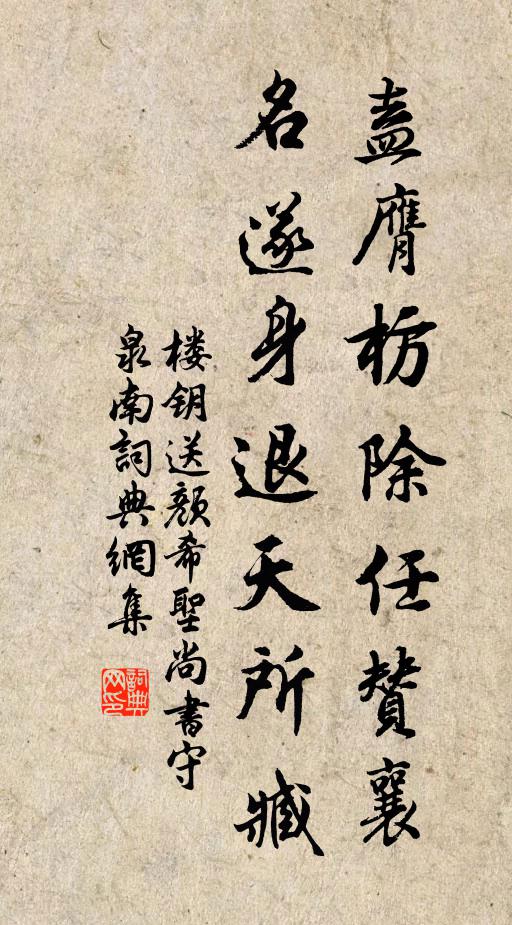 盍膺枋除任赞襄
名遂身退天所臧
楼钥送颜希聖尚書守
泉南詞典網集
詞典网印